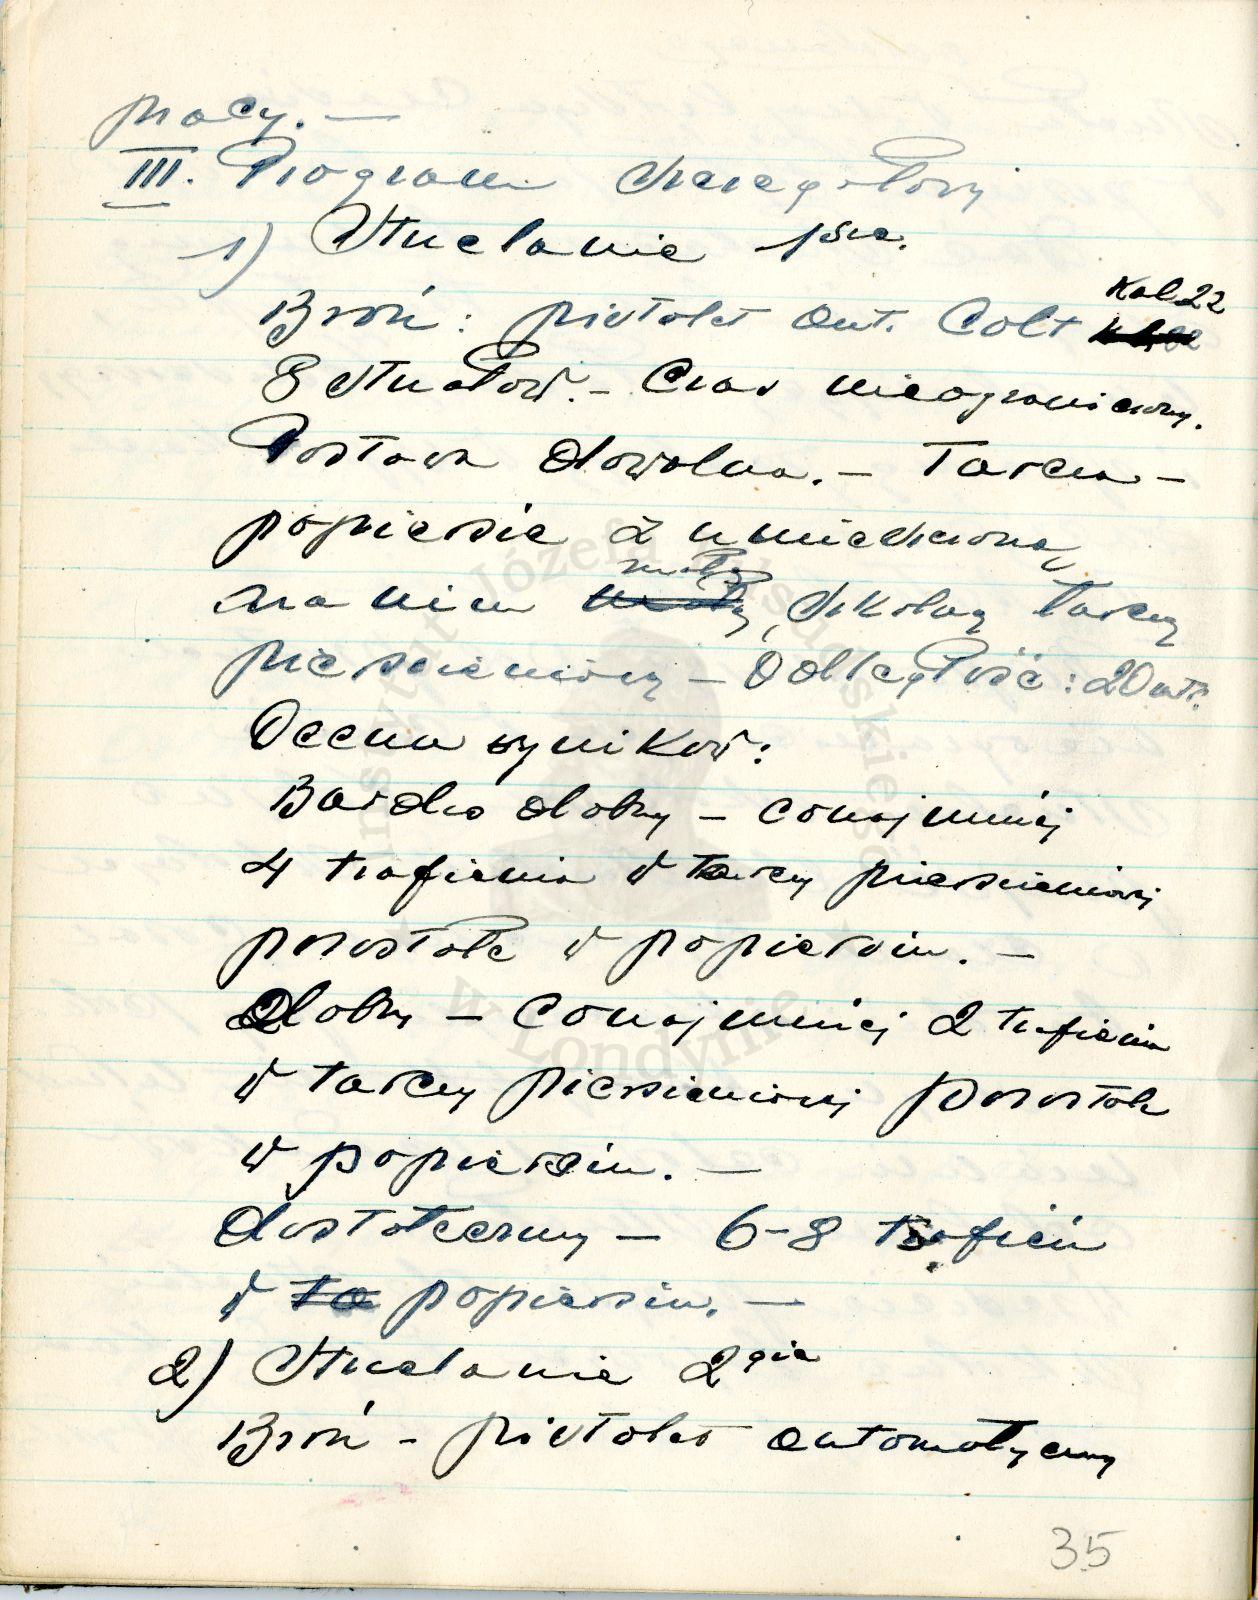 pracy. —
III. Program szczegółowy
1) Strzelanie 1sze.
Broń: pistolet aut. Colt Kal 22
8 strzałów. – Czas nieograniczony.
Postawa dowolna. – Tarcza –
popiersie z umieszczoną
na niem małą szkolną tarczą
pierścieniową – Odległość: 20 mt.
Ocena wyników:
Bardzo dobry – conajmniej
4 trafienia w tarczy pierścieniowej
pozostałe w popiersiu. —
Dobry – conajmniej 2 trafienia
w tarczy pierścieniowej pozostałe
w popiersiu. —
dostateczny – 6-8 trafień
w popiersiu. —
2) Strzelanie 2gie
Broń – pistolet automatyczny
35
Instytut Józefa Piłsudskiego
w Londynie